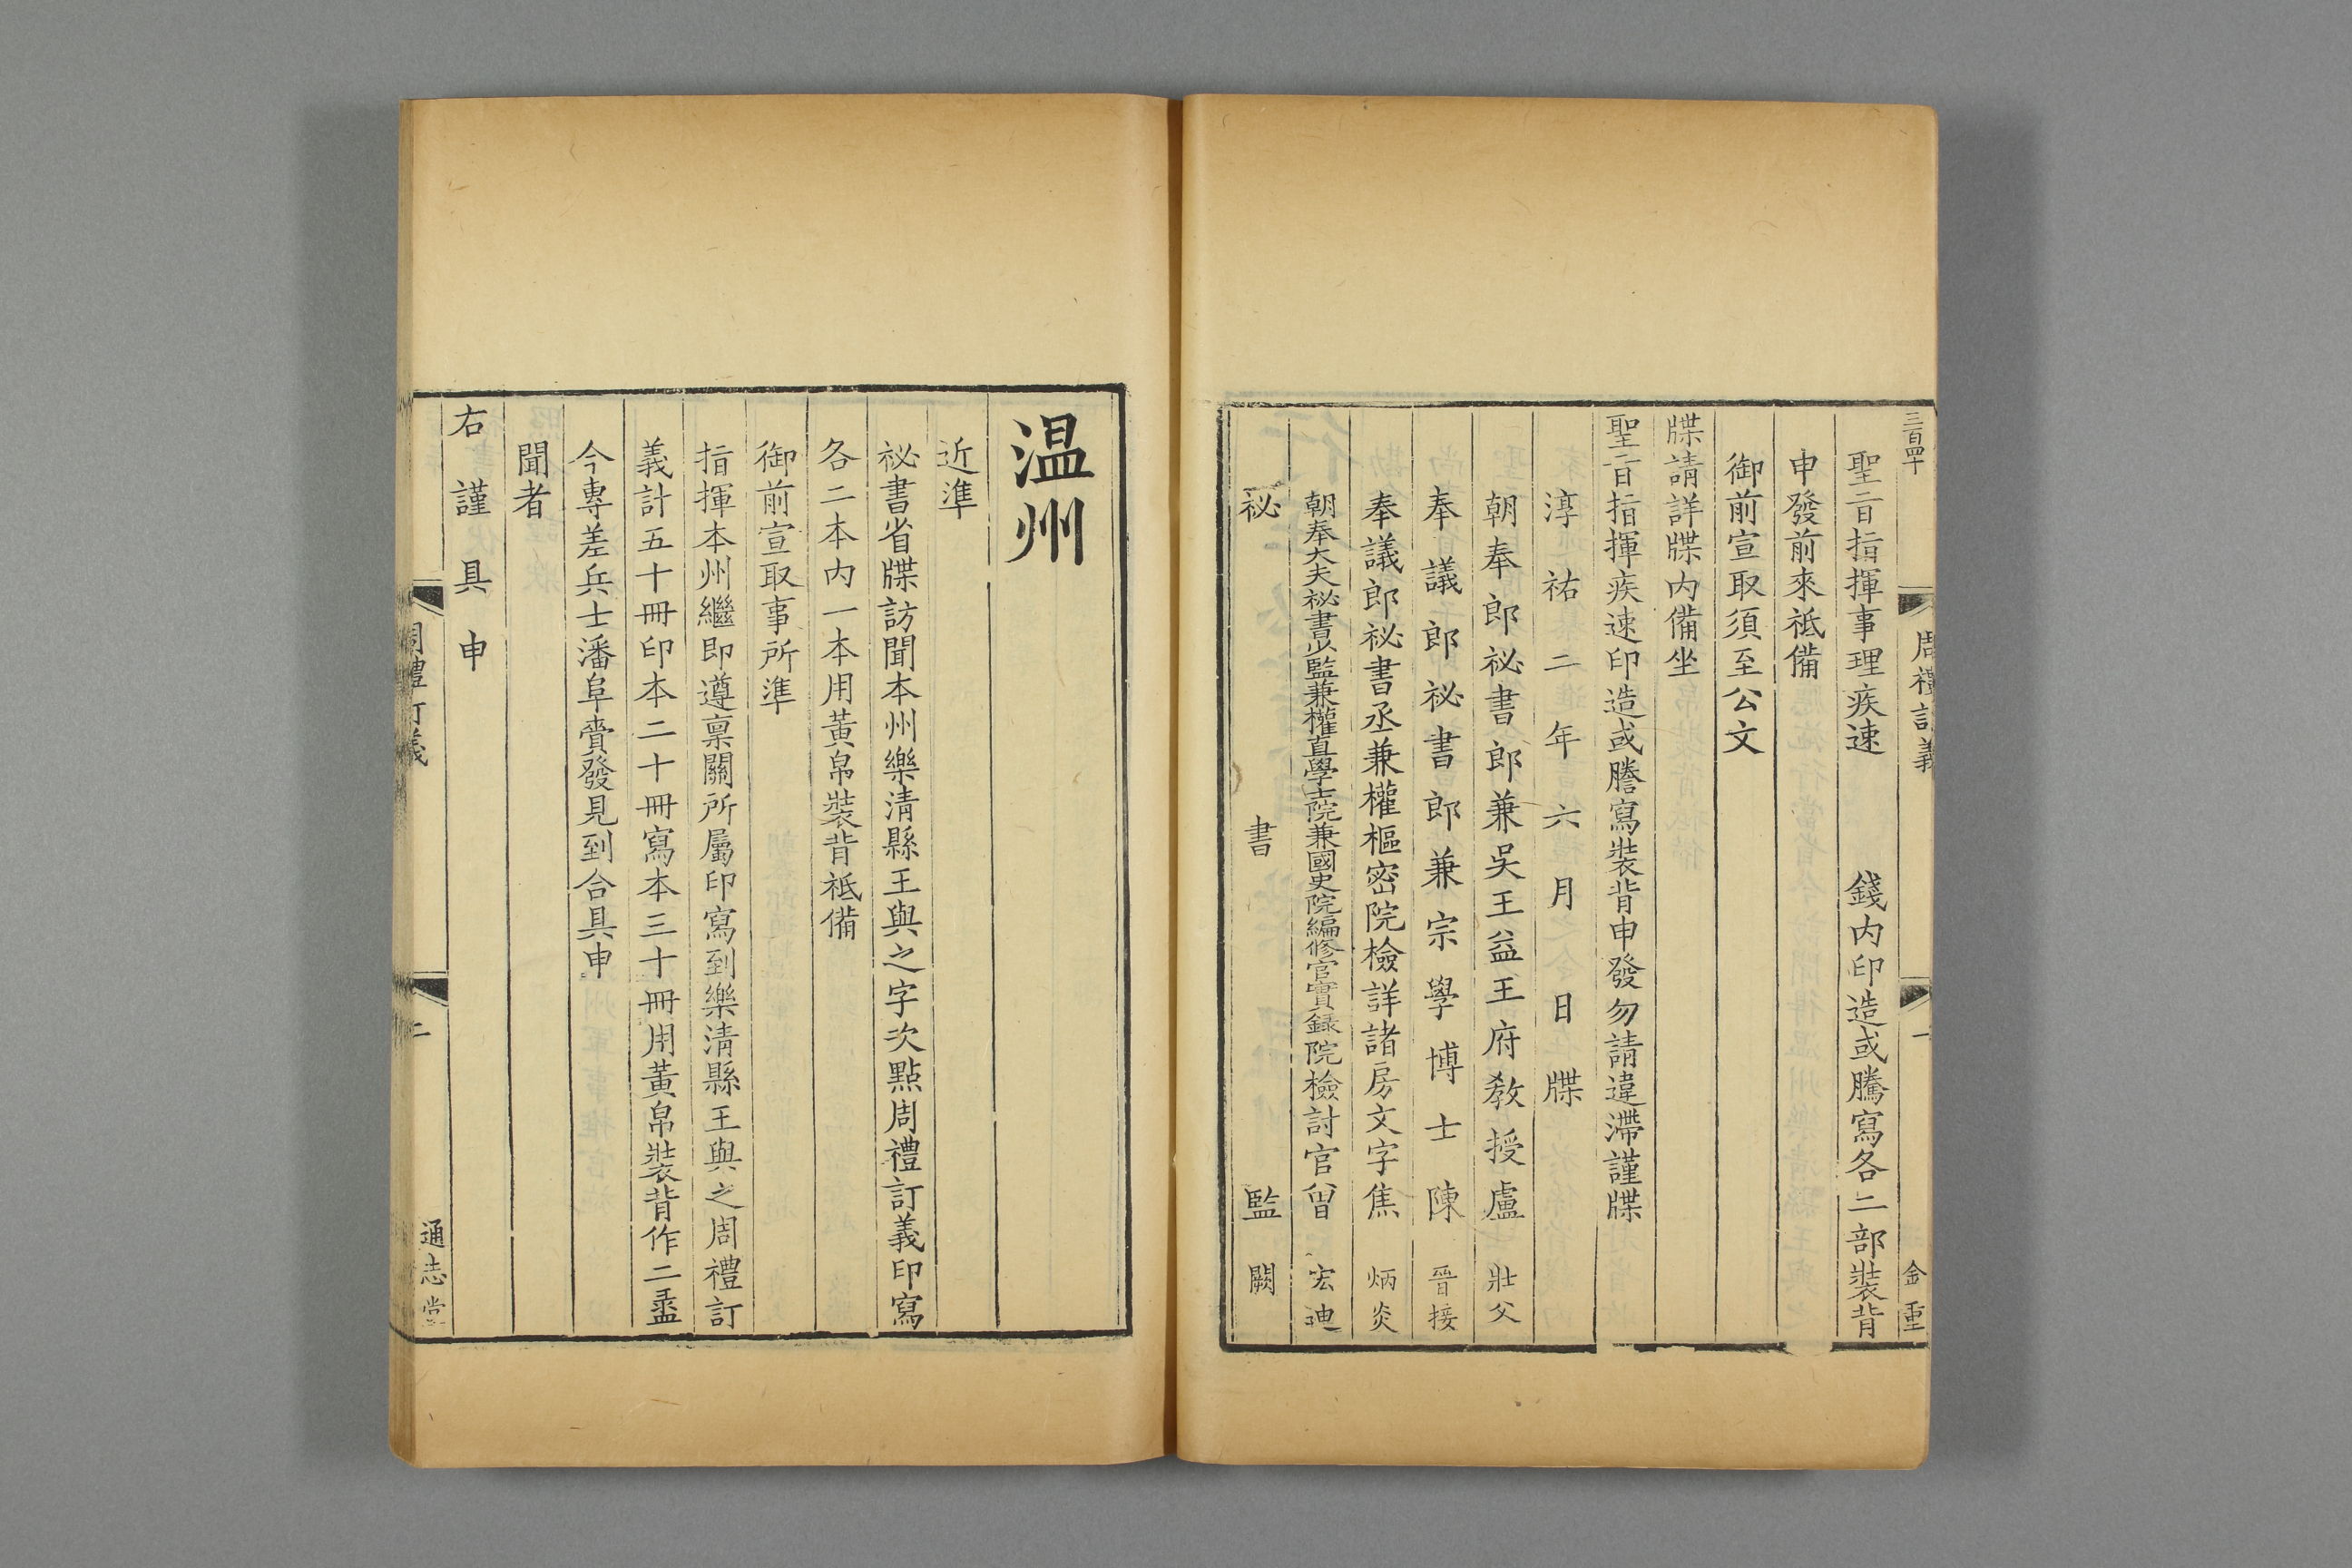 三百四十
周禮訂義
一
金重
聖旨指揮事理疾速　錢内印造或騰寫各二部裝背
申發前來祗備
御前宣取須至公文
牒請詳牒内備坐
聖旨指揮疾速印造或謄寫裝背申發勿請違滯謹牒
淳祐二年六月日牒
朝奉郎祕書郎兼吳王益王府教授盧 壯父
奉議郎祕書郎兼宗學博士陳 晉接
奉議郎祕書丞兼權樞密院檢詳諸房文字焦 炳炎
朝奉大夫祕書少監兼權直學士院兼國史院編修官實録院檢討官曾 宏迪
祕書監 闕
温州
近準
祕書省牒訪聞本州樂清縣王與之字次點周禮訂義印寫
各二本内一本用黃帛裝背祗備
御前宣取事所準
指揮本州繼即遵稟關所屬印寫到樂清縣王與之周禮訂
義計五十冊印本二十冊寫本三十冊用黃帛裝背作二盝
今專差兵士潘阜賫發見到合具申
聞者
右謹具申
周禮訂義
二
通志堂